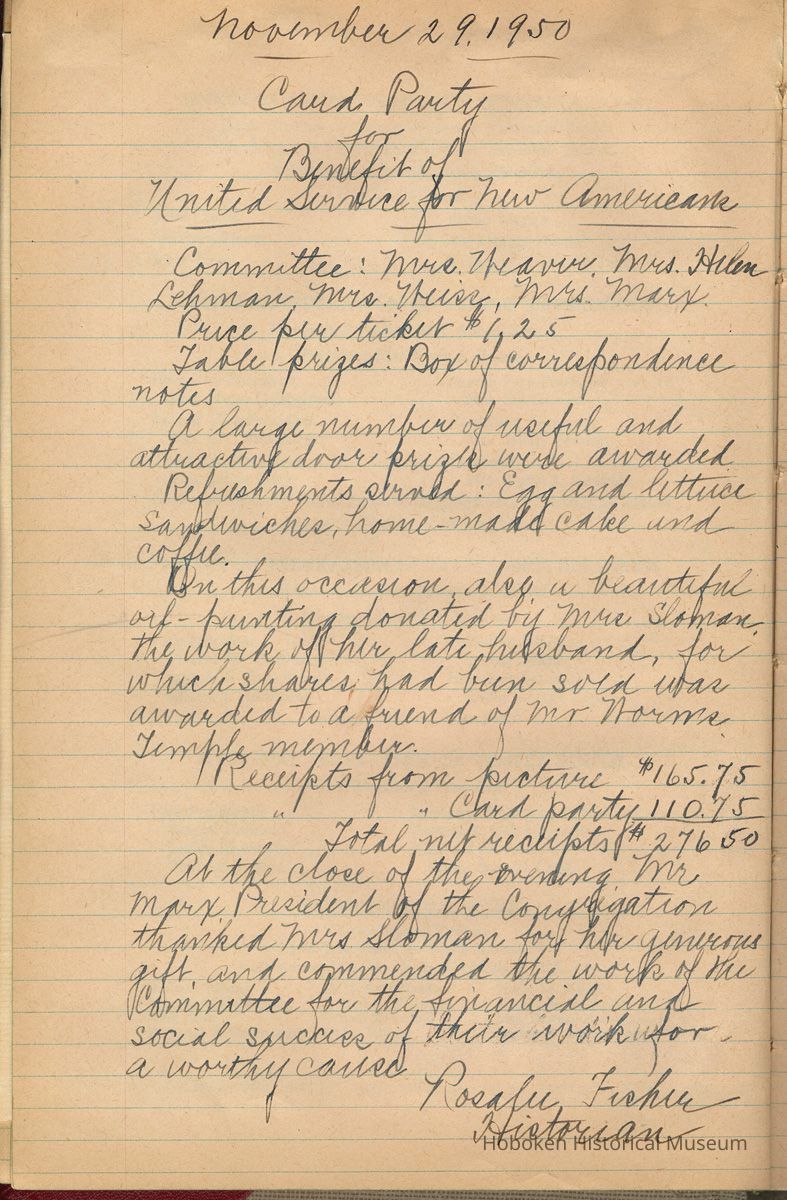 November 29, 1950
Card Party
for
Benefit of
United Service for New Americans
Committee: Mrs. Weaver, Mrs. Helen
Lehman, Mrs. Weiss, Mrs. Marx.
Price per ticket $1.25
Table prizes: Box of correspondence
notes
A large number of useful and
attractive door prizes were awarded
Refreshments served: Egg and lettuce
sandwiches, home-made cake and
coffee.
On this occasion, also a beautiful
oil-painting donated by Mrs Sloman,
the work of her late husband, for
which shares had been sold was
awarded to a friend of Mr Worms
Temple member.
Receipts from picture $165.75
" " Card party 110.75
Total net receipts $276 50
At the close of the evening Mr
Marx, President of the Congregation
thanked Mrs Sloman for her generous
gift, and commended the work of the
Committee for the financial and
social success of their work for
a worthy cause
Rosalie Fisher
Historian
Hoboken Historical Museum